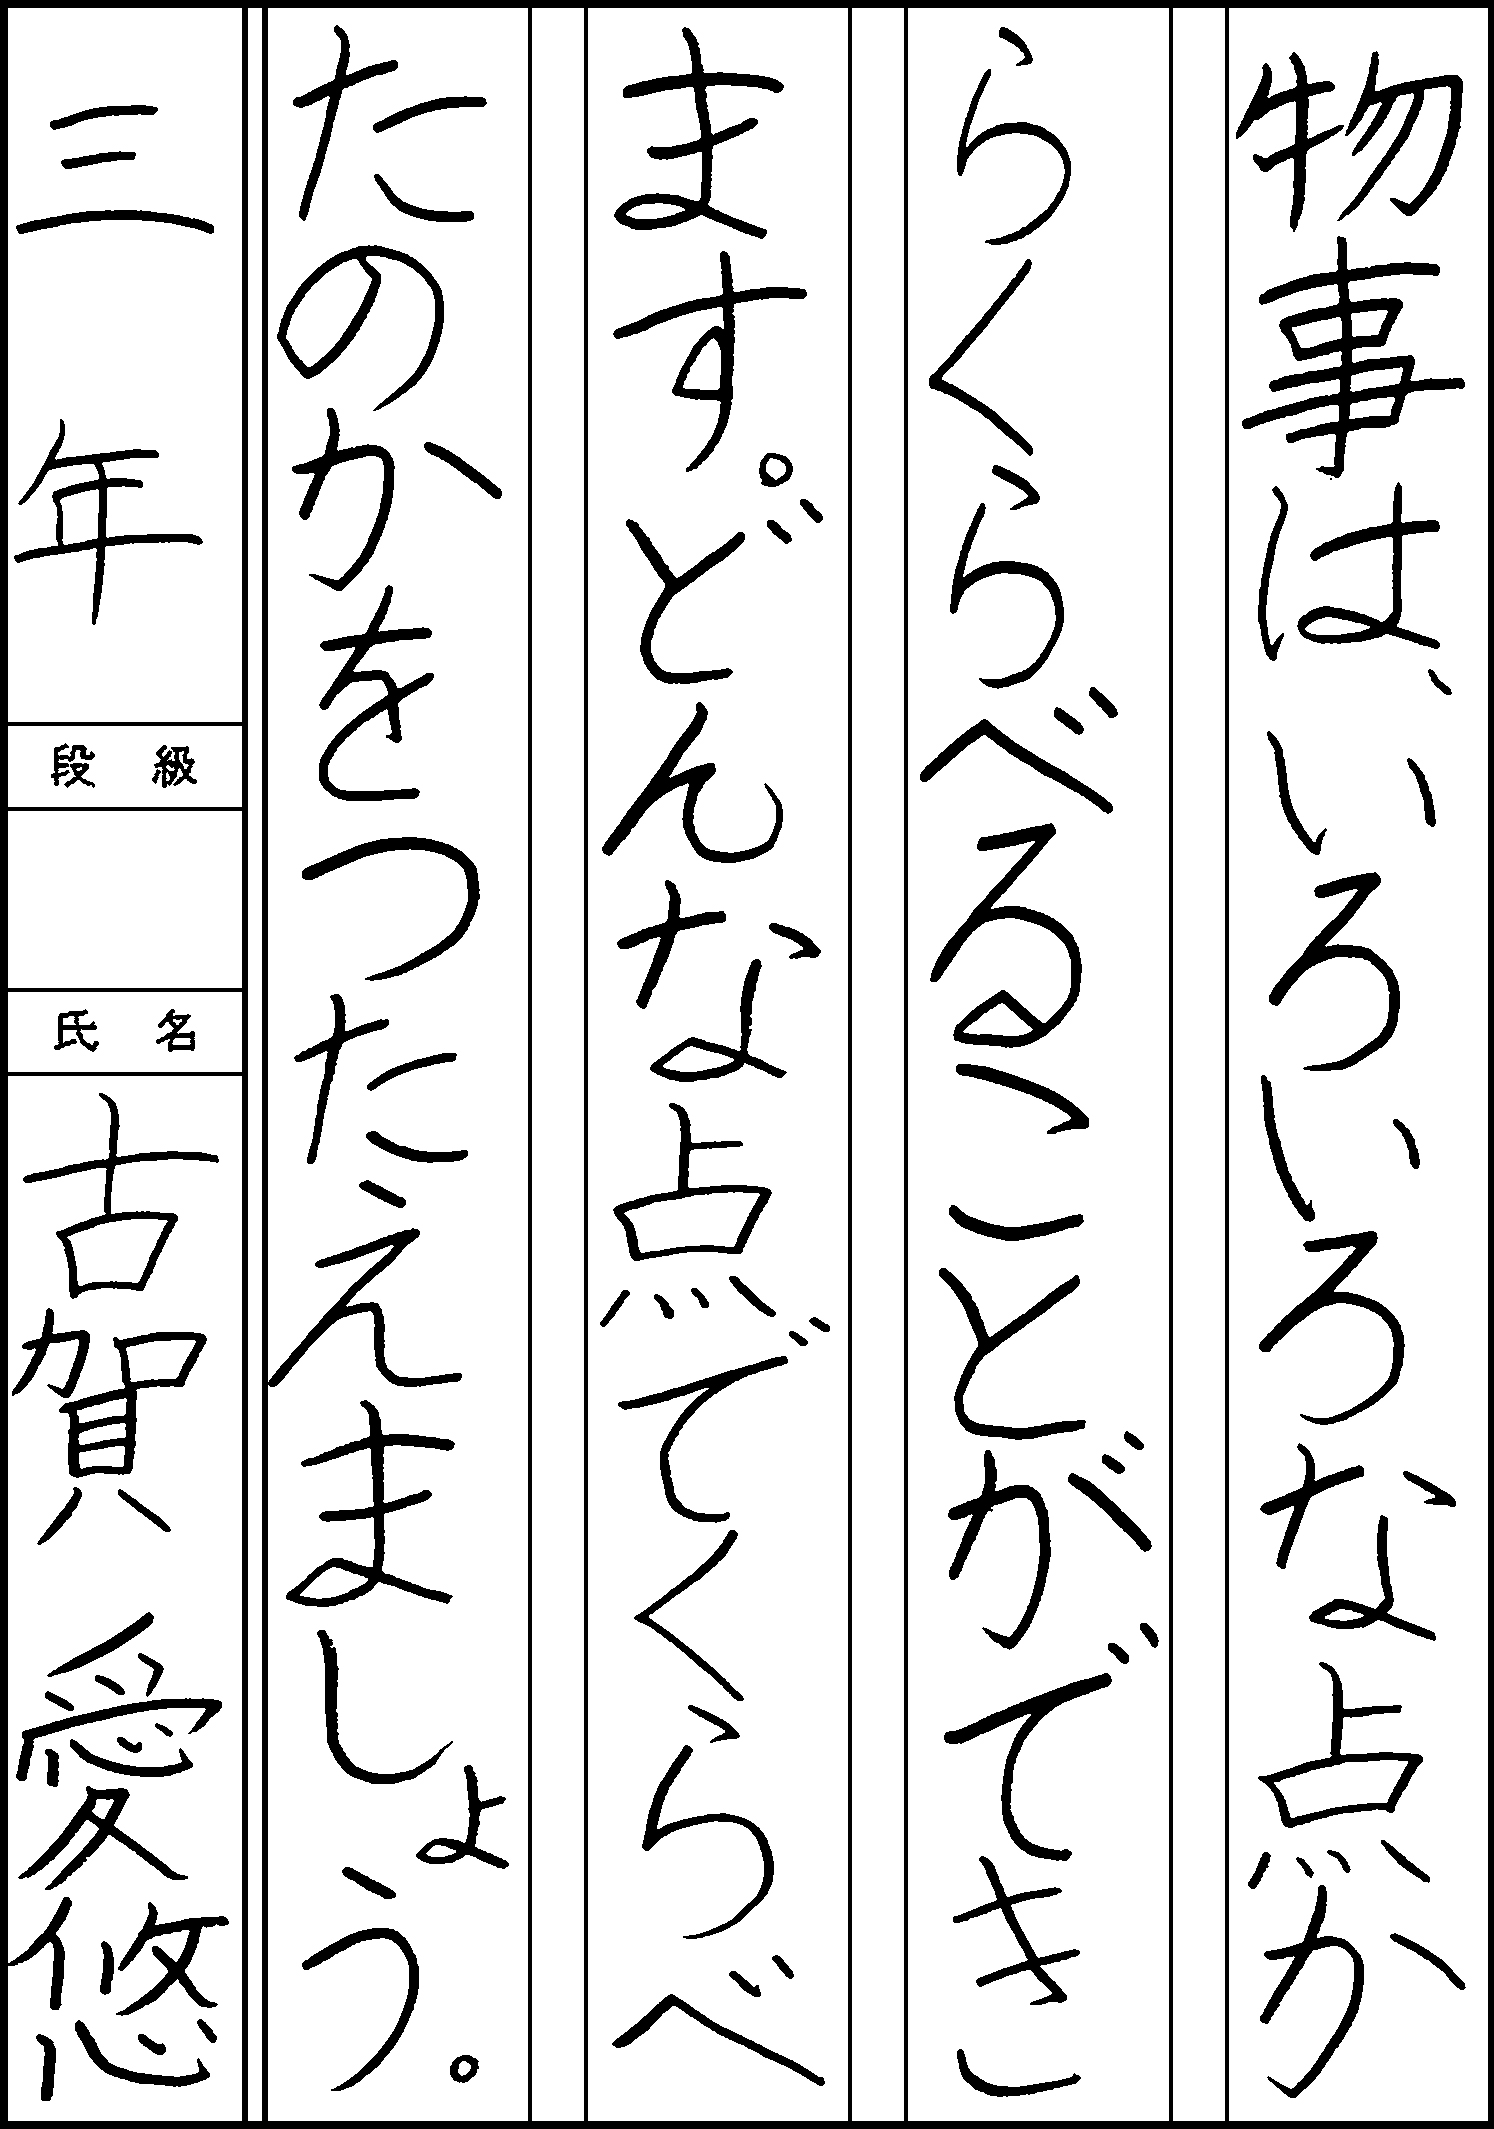 物事は、いろいろな点か
らくらべることができ
ます。どんな点でくらべ
たのかをつたえましょう。
三年
段級
氏名
古賀愛悠